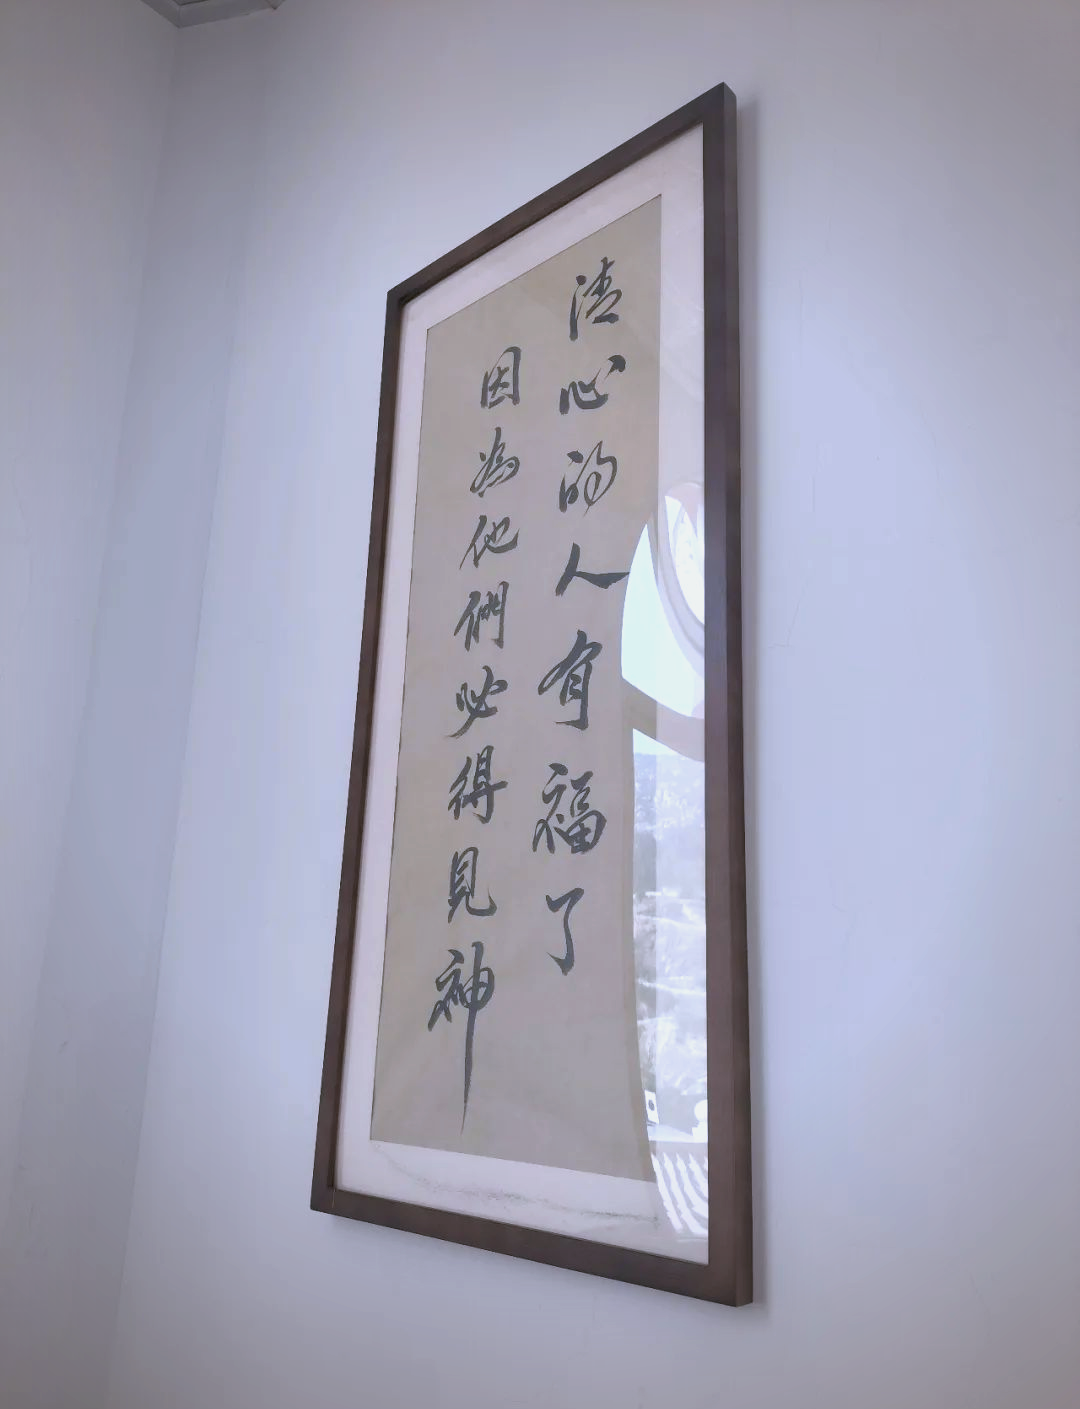 清心的人有福了
因為他們必得見神